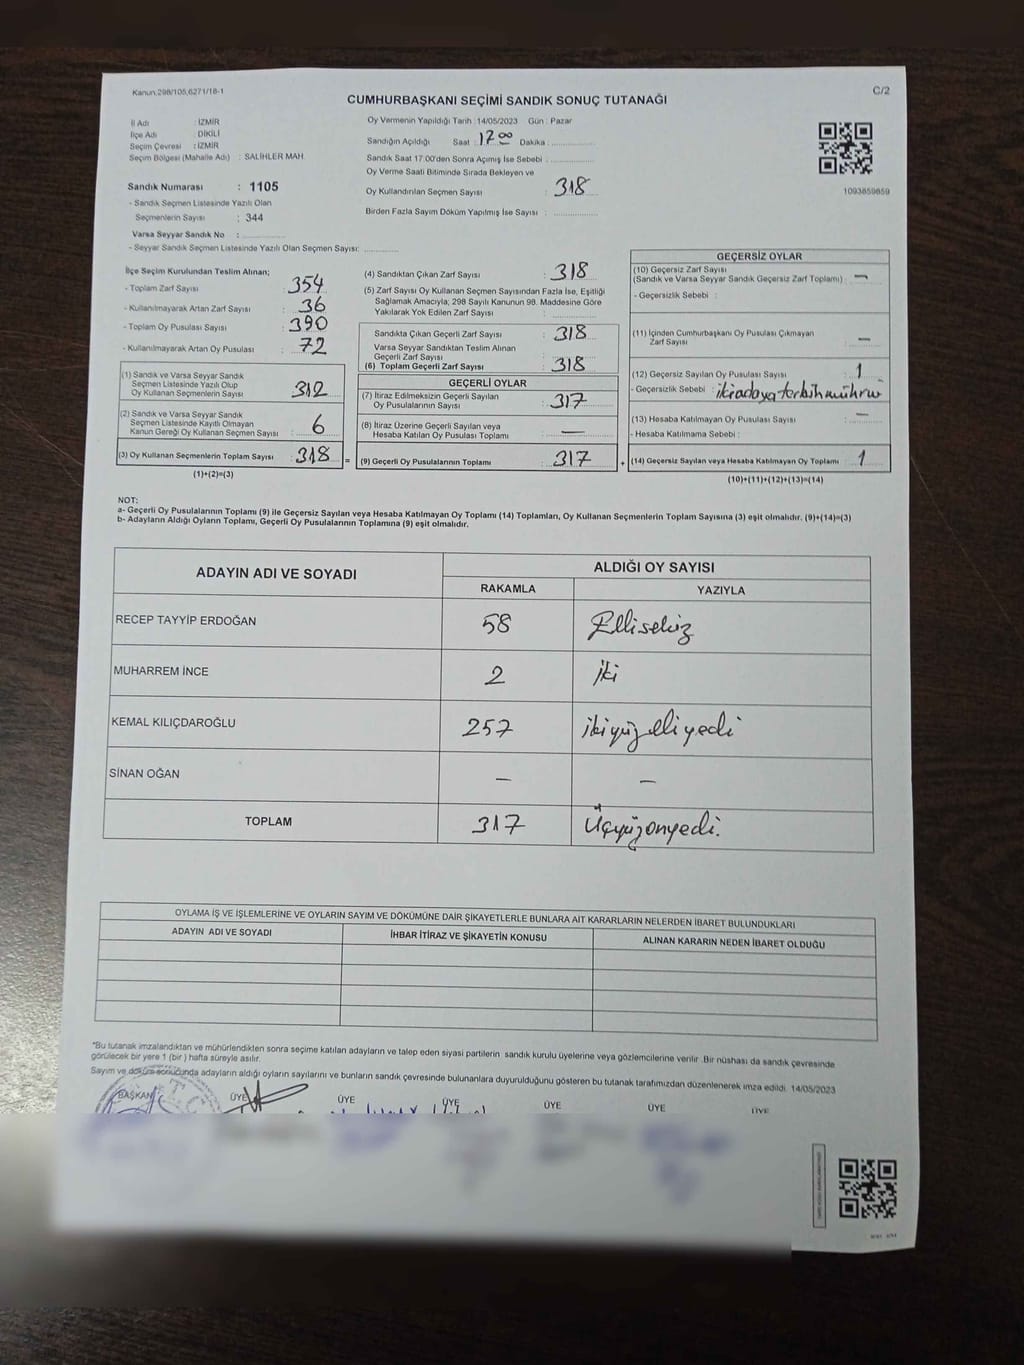 Kanun,298/105,6271/18-1
C/2
CUMHURBAŞKANI SEÇİMİ SANDIK SONUÇ TUTANAĞI
İl Adı : İZMİR
İlçe Adı : DİKİLİ
Seçim Çevresi : İZMİR
Seçim Bölgesi (Mahalle Adı) : SALİHLER MAH.
Sandık Numarası : 1105
- Sandık Seçmen Listesinde Yazılı Olan
Seçmenlerin Sayısı : 344
Varsa Seyyar Sandık No :
- Seyyar Sandık Seçmen Listesinde Yazılı Olan Seçmen Sayısı:
Oy Vermenin Yapıldığı Tarih : 14/05/2023 Gün : Pazar
Sandığın Açıldığı Saat : 17 00 Dakika :
Sandık Saat 17.00'den Sonra Açımış İse Sebebi :
Oy Verme Saati Bitiminde Sırada Bekleyen ve
Oy Kullandırılan Seçmen Sayısı : 318
Birden Fazla Sayım Döküm Yapılmış İse Sayısı :
1093859859
İlçe Seçim Kurulundan Teslim Alınan;
- Toplam Zarf Sayısı : 354
- Kullanılmayarak Artan Zarf Sayısı : 36
- Toplam Oy Pusulası Sayısı : 390
- Kullanılmayarak Artan Oy Pusulası : 72
(1) Sandık ve Varsa Seyyar Sandık
Seçmen Listesinde Yazılı Olup
Oy Kullanan Seçmenlerin Sayısı : 312
(2) Sandık ve Varsa Seyyar Sandık
Seçmen Listesinde Kayıtlı Olmayan
Kanun Gereği Oy Kullanan Seçmen Sayısı : 6
(3) Oy Kullanan Seçmenlerin Toplam Sayısı : 318 =
(1)+(2)=(3)
(4) Sandıktan Çıkan Zarf Sayısı : 318
(5) Zarf Sayısı Oy Kullanan Seçmen Sayısından Fazla İse, Eşitliği
Sağlamak Amacıyla; 298 Sayılı Kanunun 98. Maddesine Göre
Yakılarak Yok Edilen Zarf Sayısı :
Sandıkta Çıkan Geçerli Zarf Sayısı : 318
Varsa Seyyar Sandıktan Teslim Alınan
Geçerli Zarf Sayısı :
(6) Toplam Geçerli Zarf Sayısı : 318
GEÇERLİ OYLAR
(7) İtiraz Edilmeksizin Geçerli Sayılan
Oy Pusulalarının Sayısı : 317
(8) İtiraz Üzerine Geçerli Sayılan veya
Hesaba Katılan Oy Pusulası Toplamı : —
(9) Geçerli Oy Pusulalarının Toplamı : 317 +
GEÇERSİZ OYLAR
(10) Geçersiz Zarf Sayısı
(Sandık ve Varsa Seyyar Sandık Geçersiz Zarf Toplamı) : —
- Geçersizlik Sebebi :
(11) İçinden Cumhurbaşkanı Oy Pusulası Çıkmayan
Zarf Sayısı : —
(12) Geçersiz Sayılan Oy Pusulası Sayısı : 1
- Geçersizlik Sebebi :
(13) Hesaba Katılmayan Oy Pusulası Sayısı : —
- Hesaba Katılmama Sebebi :
(14) Geçersiz Sayılan veya Hesaba Katılmayan Oy Toplamı : 1
(10)+(11)+(12)+(13)=(14)
NOT:
a- Geçerli Oy Pusulalarının Toplamı (9) ile Geçersiz Sayılan veya Hesaba Katılmayan Oy Toplamı (14) Toplamları, Oy Kullanan Seçmenlerin Toplam Sayısına (3) eşit olmalıdır. (9)+(14)=(3)
b- Adayların Aldığı Oyların Toplamı, Geçerli Oy Pusulalarının Toplamına (9) eşit olmalıdır.
ADAYIN ADI VE SOYADI
ALDIĞI OY SAYISI
RAKAMLA YAZIYLA
RECEP TAYYİP ERDOĞAN 58 Ellisekiz
MUHARREM İNCE 2 iki
KEMAL KILIÇDAROĞLU 257 ikiyüzelliyedi
SİNAN OĞAN — —
TOPLAM 317 Üçyüzonyedi.
OYLAMA İŞ VE İŞLEMLERİNE VE OYLARIN SAYIM VE DÖKÜMÜNE DAİR ŞİKAYETLERLE BUNLARA AİT KARARLARIN NELERDEN İBARET BULUNDUKLARI
ADAYIN ADI VE SOYADI İHBAR İTİRAZ VE ŞİKAYETİN KONUSU ALINAN KARARIN NEDEN İBARET OLDUĞU
*Bu tutanak imzalandıktan ve mühürlendikten sonra seçime katılan adayların ve talep eden siyasi partilerin sandık kurulu üyelerine veya gözlemcilerine verilir .Bir nüshası da sandık çevresinde
görülecek bir yere 1 (bir ) hafta süreyle asılır.
Sayım ve döküm sonucunda adayların aldığı oyların sayılarını ve bunların sandık çevresinde bulunanlara duyurulduğunu gösteren bu tutanak tarafımızdan düzenlenerek imza edildi. 14/05/2023
BAŞKAN ÜYE ÜYE ÜYE ÜYE ÜYE ÜYE
T.C.